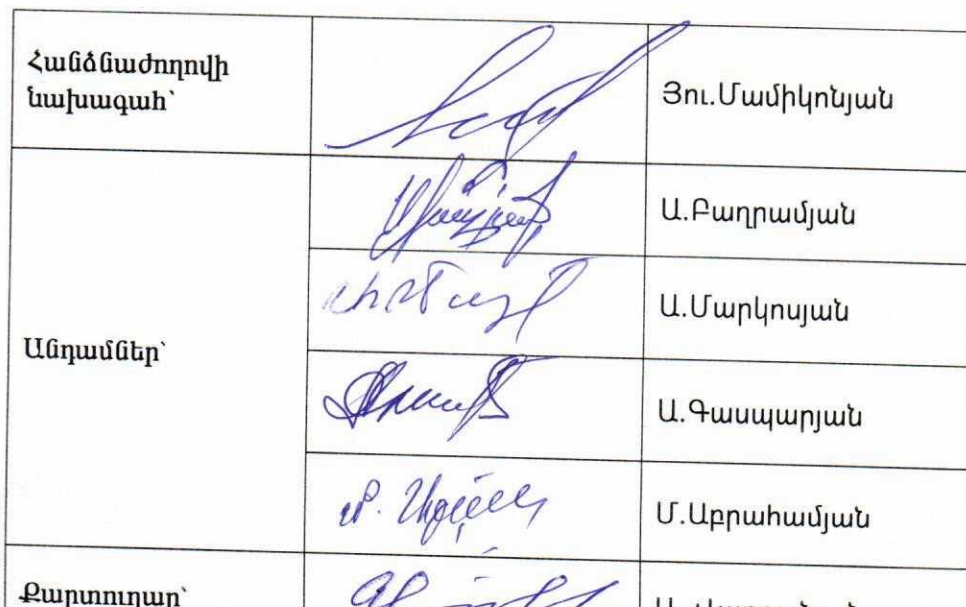 Հանձնաժողովի
նախագահ՝
Յու.Մամիկոնյան
Ա.Բաղրամյան
Ա.Մարկոսյան
Անդամներ՝
Ա.Գասպարյան
Մ.Աբրահամյան
Քարտուղար՝